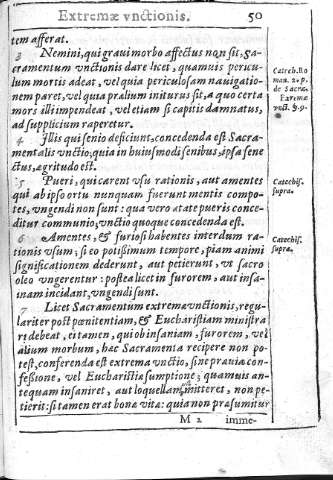 Extremæ vnctionis. 50
tem afferat.
3 Nemini, qui graui morbo affectus non sit, Sa-
cramentum vnctionis dare licet, quamuis pericu-
lum mortis adeat, vel quia periculosam nauigatio-
nem paret, vel quia prælium initurus sit, a quo certa
mors illi impendeat, vel etiam si capitis damnatus,
ad supplicium raperetur.
Catech. Ro
man. 2. p.
de Sacra.
Extremæ
vnct. §. 9.
4 Illis qui senio deficiunt, concedenda est Sacra-
mentalis vnctio, quia in huiusmodi senibus, ipsa sene
ctus, ægritudo est.
5 Pueri, qui carent vsu rationis, aut amentes
qui ab ipso ortu nunquam fuerunt mentis compo-
tes, vngendi non sunt: qua vero ætate pueris conce-
ditur communio, vnctio quoque concedenda est.
Catechis.
supra.
6 Amentes, & furiosi habentes interdum ra-
tionis vsum; si eo potissimum tempore, piam animi
significationem dederunt, aut petierunt, vt sacro
oleo vngerentur: postea licet in furorem, aut insa-
niam incidant, vngendi sunt.
Catechis.
supra.
7 Licet Sacramentum extremæ vnctionis, regu-
lariter post pœnitentiam, & Eucharistiam ministra
ri debeat, ei tamen, qui ob insaniam, furorem, vel
alium morbum, hæc Sacramenta recipere non po-
test, conferenda est extrema vnctio, sine prauia con-
fessione, vel Eucharistia sumptione; quamuis an-
tequam insaniret, aut loquellam mitteret, non pe-
tierit: si tamen erat bonæ vitæ: quia non præsumitur
M 2 imme-